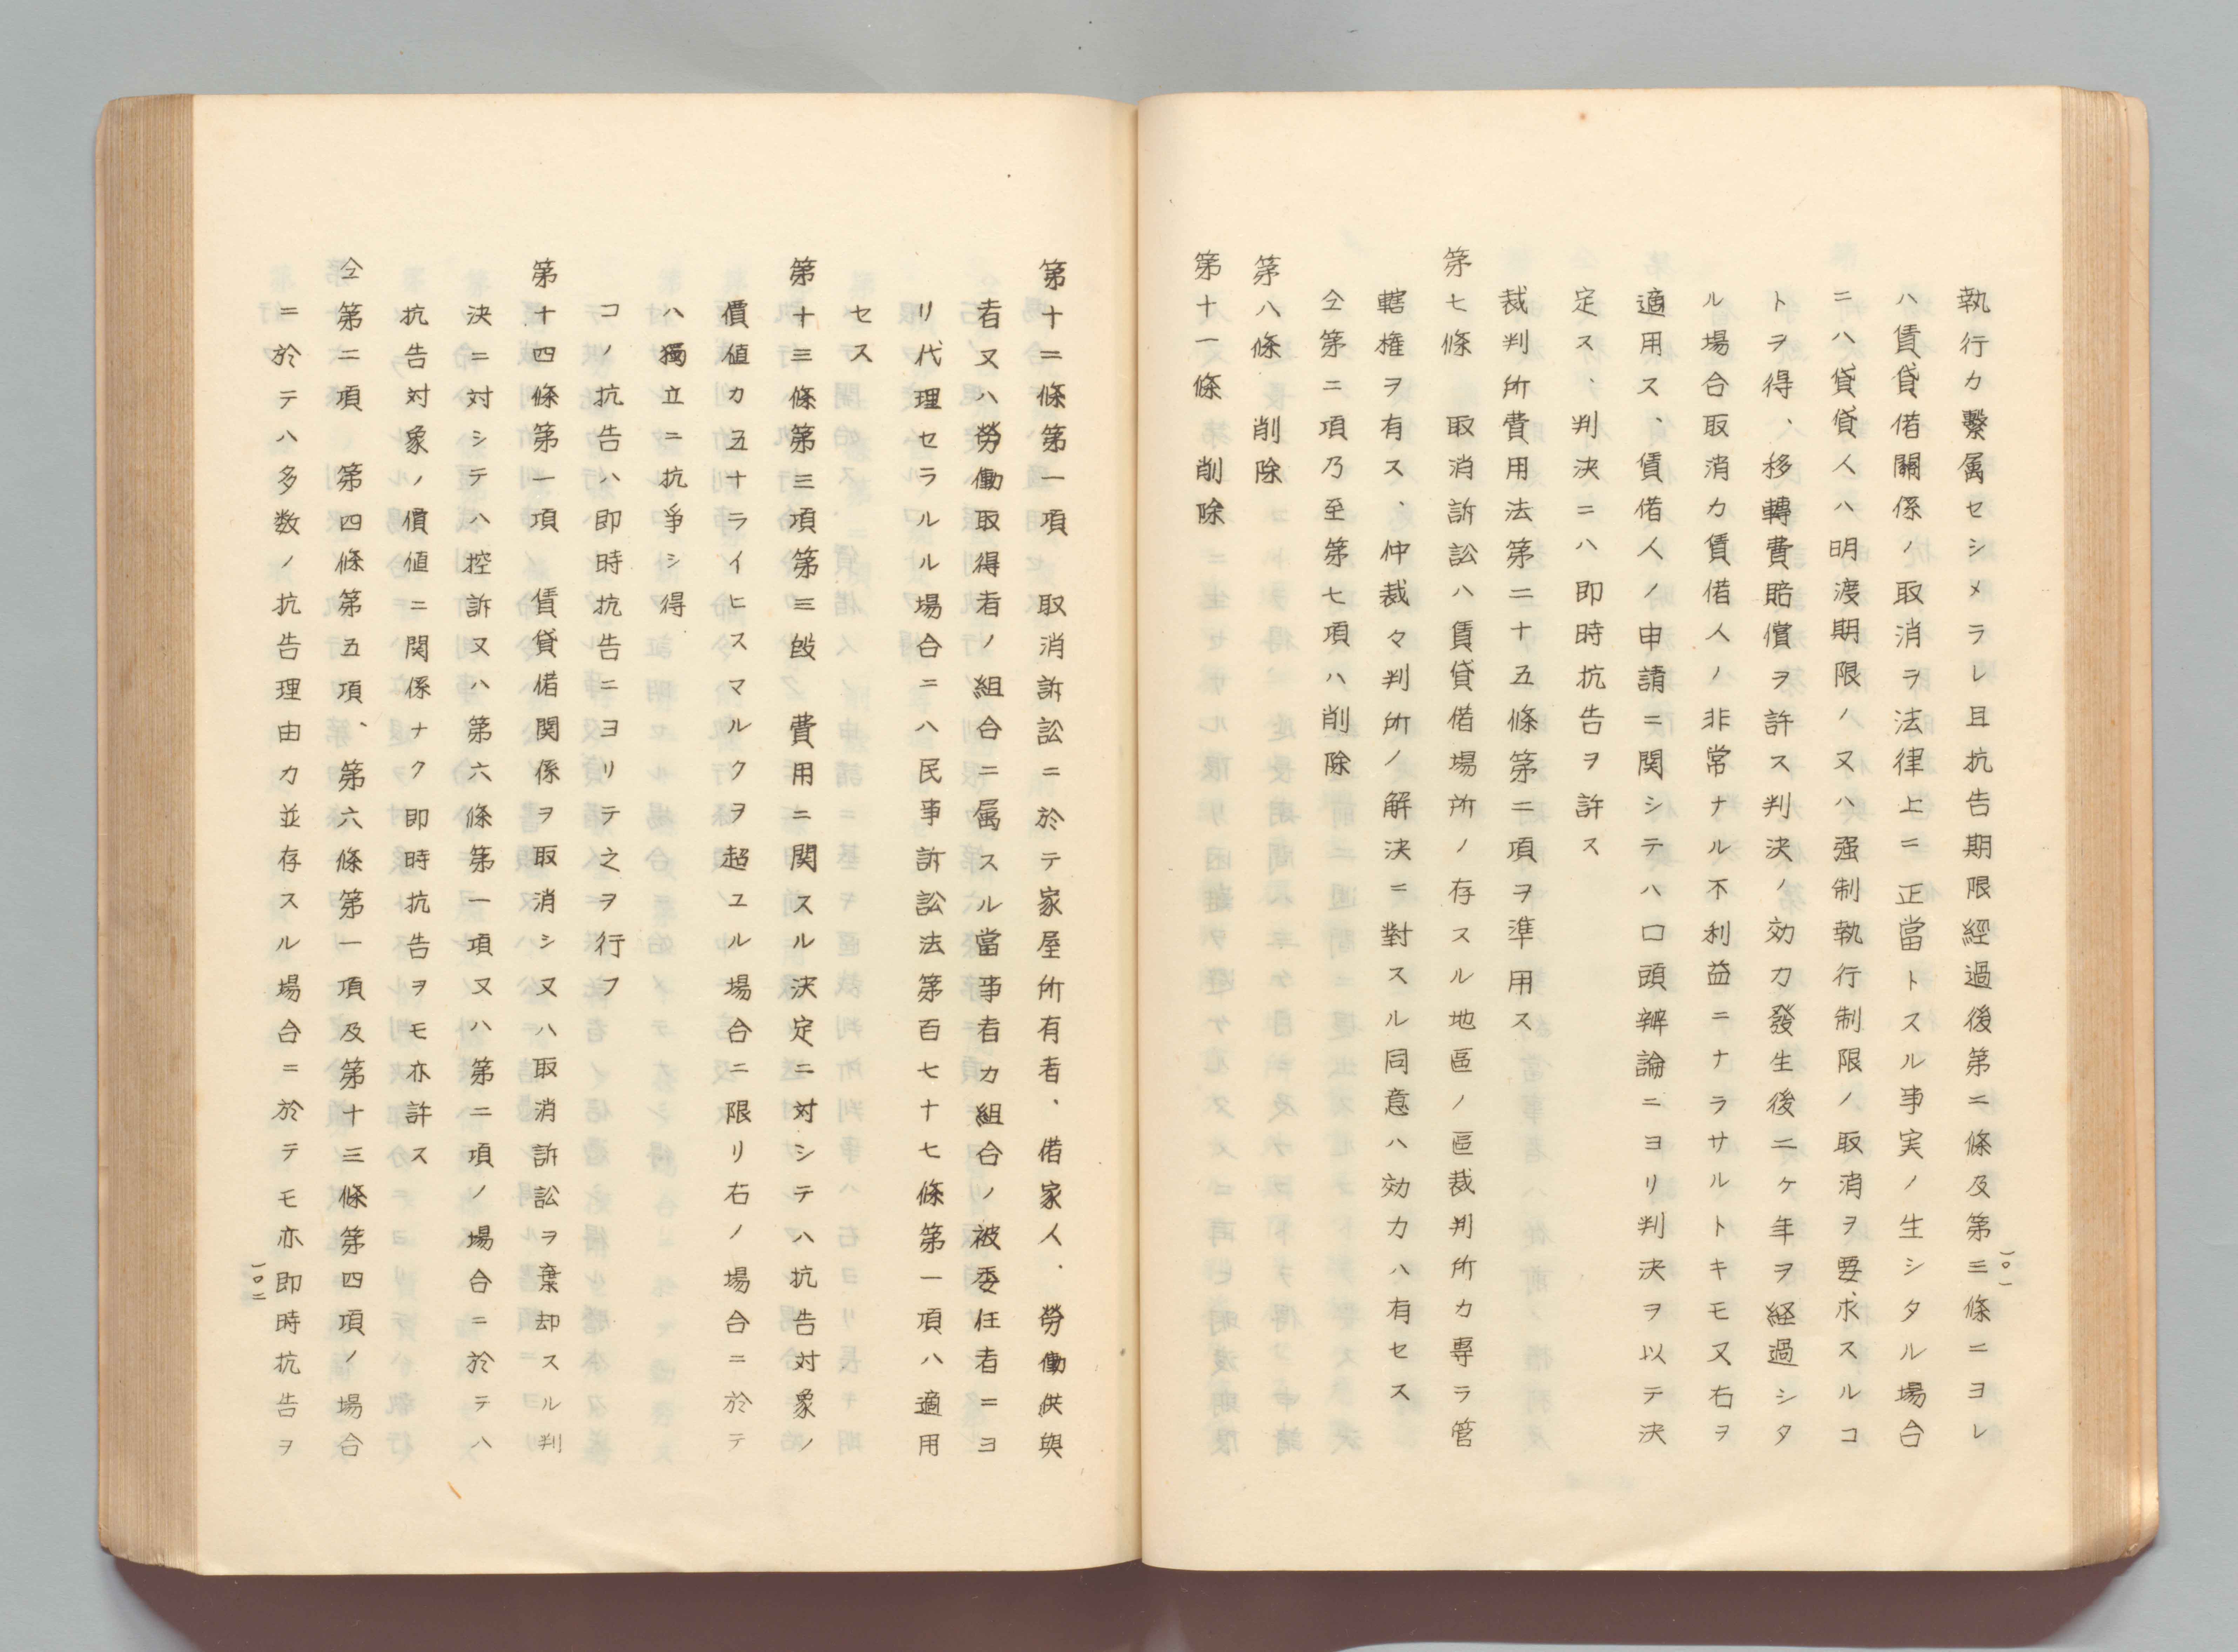 執行カ繫属セシメラレ且抗告期限經過後第二條及第三條ニヨレ
ハ賃貸借關係ノ取消ヲ法律上ニ正當トスル事実ノ生シタル場合
ニハ賃貸人ハ明渡期限ノ又ハ强制執行制限ノ取消ヲ要求スルコ
トヲ得、移轉費賠償ヲ許ス判決ノ効力發生後二ヶ年ヲ経過シタ
ル場合取消カ賃借人ノ非常ナル不利益ニナラサルトキモ又右ヲ
適用ス、賃借人ノ申請ニ関シテハ口頭辨論ニヨリ判決ヲ以テ決
定ス、判決ニハ即時抗告ヲ許ス
裁判所費用法第二十五條第二項ヲ準用ス
第七條　取消訴訟ハ賃貸借場所ノ存スル地區ノ區裁判所カ専ラ管
轄権ヲ有ス、仲裁々判所ノ解決ニ對スル同意ハ効力ハ有セス
仝第二項乃至第七項ハ削除
第八條　削除
第十一條　削除
一〇一
第十二條第一項　取消訴訟ニ於テ家屋所有者、借家人、勞働供與
者又ハ勞働取得者ノ組合ニ属スル當事者カ組合ノ被委任者ニヨ
リ代理セラルル場合ニハ民事訴訟法第百七十七條第一項ハ適用
セス
第十三條第三項第三段　費用ニ関スル決定ニ対シテハ抗告対象ノ
價値カ五十ライヒスマルクヲ超ユル場合ニ限リ右ノ場合ニ於テ
ハ獨立ニ抗爭シ得
コノ抗告ハ即時抗告ニヨリテ之ヲ行フ
第十四條第一項　賃貸借関係ヲ取消シ又ハ取消訴訟ヲ棄却スル判
決ニ対シテハ控訴又ハ第六條第一項又ハ第二項ノ場合ニ於テハ
抗告対象ノ價値ニ関係ナク即時抗告ヲモ亦許ス
仝第二項　第四條第五項、第六條第一項及第十三條第四項ノ場合
ニ於テハ多数ノ抗告理由カ並存スル場合ニ於テモ亦即時抗告ヲ
一〇二